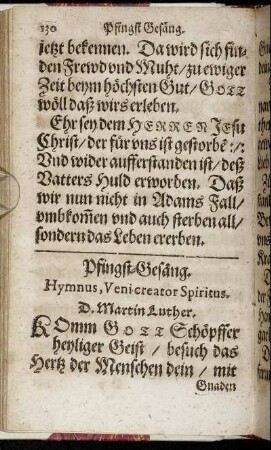 130 Pfingst Gesäng.
jetzt bekennen. Da wird sich fin-
den Frewd vnd Muht / zu ewiger
Zeit beym höchsten Gut / GOTT
wöll daß wirs erleben.
Ehr sey dem HERREN JEsu
Christ / der für vns ist gestorbẽ :/:
Vnd wider aufferstanden ist / deß
Vatters Huld erworben. Daß
wir nun nicht in Adams Fall /
vmbkom̃en vnd auch sterben all /
sondern das Leben ererben.
Pfingst-Gesäng.
Hymnus, Veni creator Spiritus.
D. Martin Luther.
KOmm GOTT Schöpffer
heyliger Geist / besuch das
Hertz der Menschen dein / mit
Gnaden